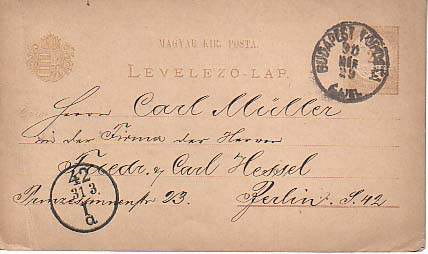 MAGYAR KIR. POSTA.
LEVELEZŐ-LAP.
BUDAPEST
90
MÁR
29
Herrn Carl Müller
in der Firma der Herren
Friedr. & Carl Hessel
Prinzessinnenstr 23. Berlin. S. 42
42
31 3.
1
a